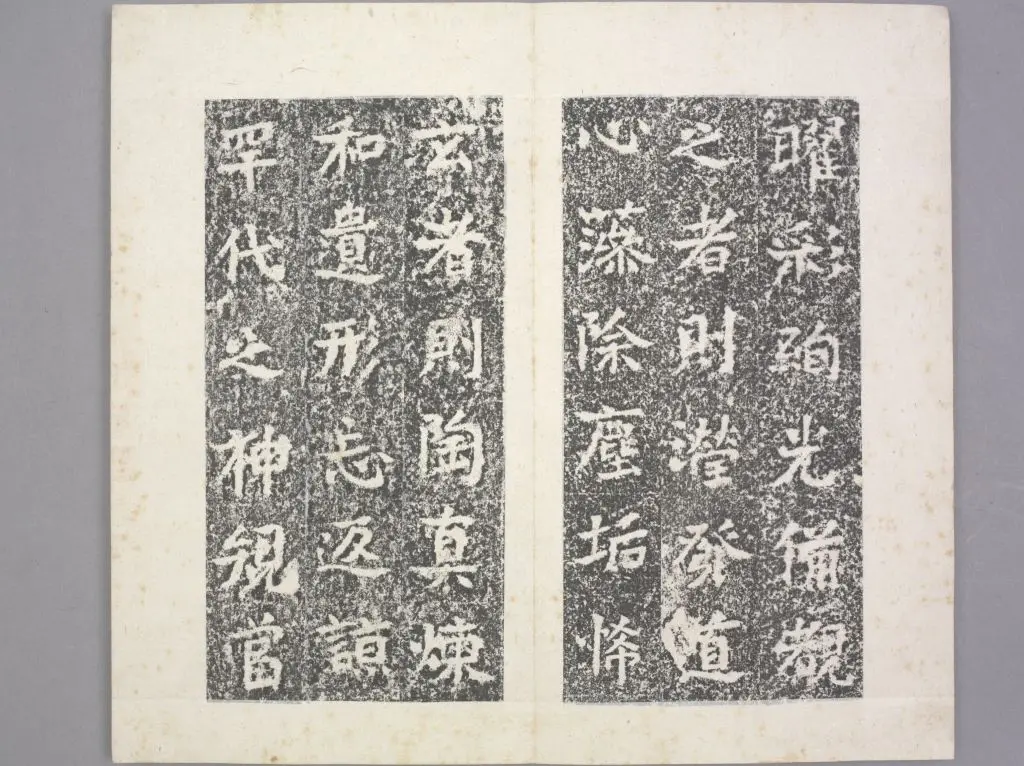 曜彩珀光備覩
之者則瀅發道
心藻除塵垢悕
玄者則陶真煉
和遺形忘返諒
罕代之神規當